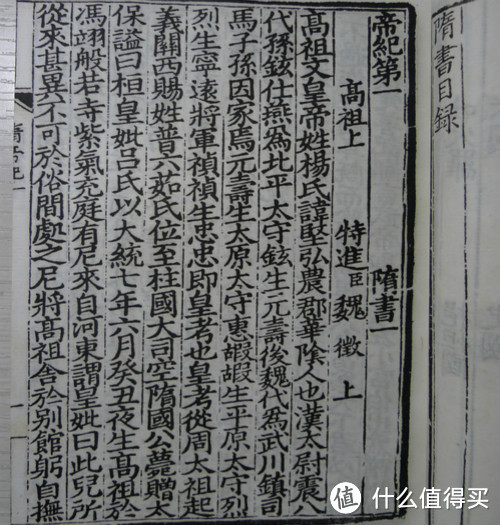 隋書目録
帝紀第一 隋書一
髙祖上 特進臣魏徵上
髙祖文皇帝姓楊氏諱堅弘農郡華隂人也漢太尉震八
代孫鉉仕燕為北平太守鉉生元壽後魏代爲武川鎮司
馬子孫因家焉元壽生太原太守惠嘏嘏生平原太守烈
烈生寧遠將軍禎禎生忠忠即皇考也皇考從周太祖起
義關西賜姓普六茹氏位至柱國大司空隋國公薨贈太
保謚曰桓皇妣吕氏以大統七年六月癸丑夜生髙祖於
馮翊般若寺紫氣充庭有尼來自河東謂皇妣曰此兒所
從來甚異不可於俗間處之尼將髙祖舍於别館躬自撫
值 什么值得买